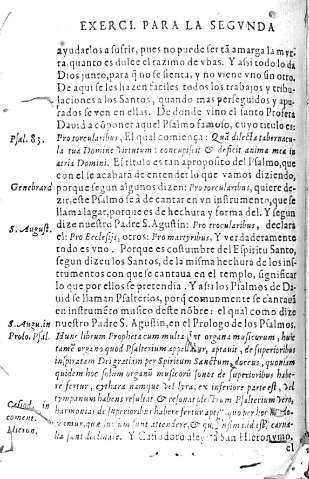 EXERCI. PARA LA SEGVNDA
ayudarlos a sufrir, pues no puede ser tã amarga la myr-
ra, quanto es dulce el razimo de vbas. Y assi todo lo da
Dios junto, para q̃ no se sienta, y no viene vno sin otro.
De aqui se les hazen faciles todos los trabajos y tribu-
laciones a los Santos, quando mas perseguidos y apu-
rados se ven en ellas. De donde vino el santo Profeta
Dauid a cõponer aquel Psalmo famoso, cuyo titulo es:
Psal. 83.
Pro torcularibus, El qual comiença: Quã dilecta tabernacu-
la tua Domine virtutum: concupiscit & deficit anima mea in
atria Domini. El titulo es tan aproposito del Psalmo, que
con el se acabará de entender lo que vamos diziendo,
Genebrard
porque segun algunos dizen: Pro torcularibus, quiere de-
zir, este Psalmo se â de cantar en vn instrumento, que se
llama lagar, porque es de hechura y forma del. Y segun
S. August.
dize nuestro Padre S. Agustin: Pro trocularibus, declara
el: Pro Ecclesijs, otros: Pro martyribus, Y verdaderamente
todo es vno. Porque es costumbre del Espiritu Santo,
segun dizen los Santos, de la misma hechura de los ins-
trumentos con que se cantaua en el templo, significar
lo que por ellos se pretendia. Y assi los Psalmos de Da-
uid se llaman Psalterios, porq̃ comunmente se cantauã
en instrumẽto musico deste nõbre: el qual como dize
S. Augu. in
Prolo. Psal.
nuestro Padre S. Agostin, en el Prologo de los Psalmos.
Hunc librum Propheta cum multa organa musicorum, huic
tamẽ organo quod Psalterium appellatur, aptauit, de superioribus
inspiratam Dei gratiam per Spiritum Sanctum, docens, quoniam
quidem hoc solum organũ musicorũ sonos de superioribus habe-
re fertur, cythara namque vel lyra, ex inferiore parte est, vel
tympanum habens resultat & resonat plectrum Psalterium vero,
harmonias de superioribus habere fertur
Casiod. in
coment.
Hieron.
& Casiodoro San Hieronymo.
el